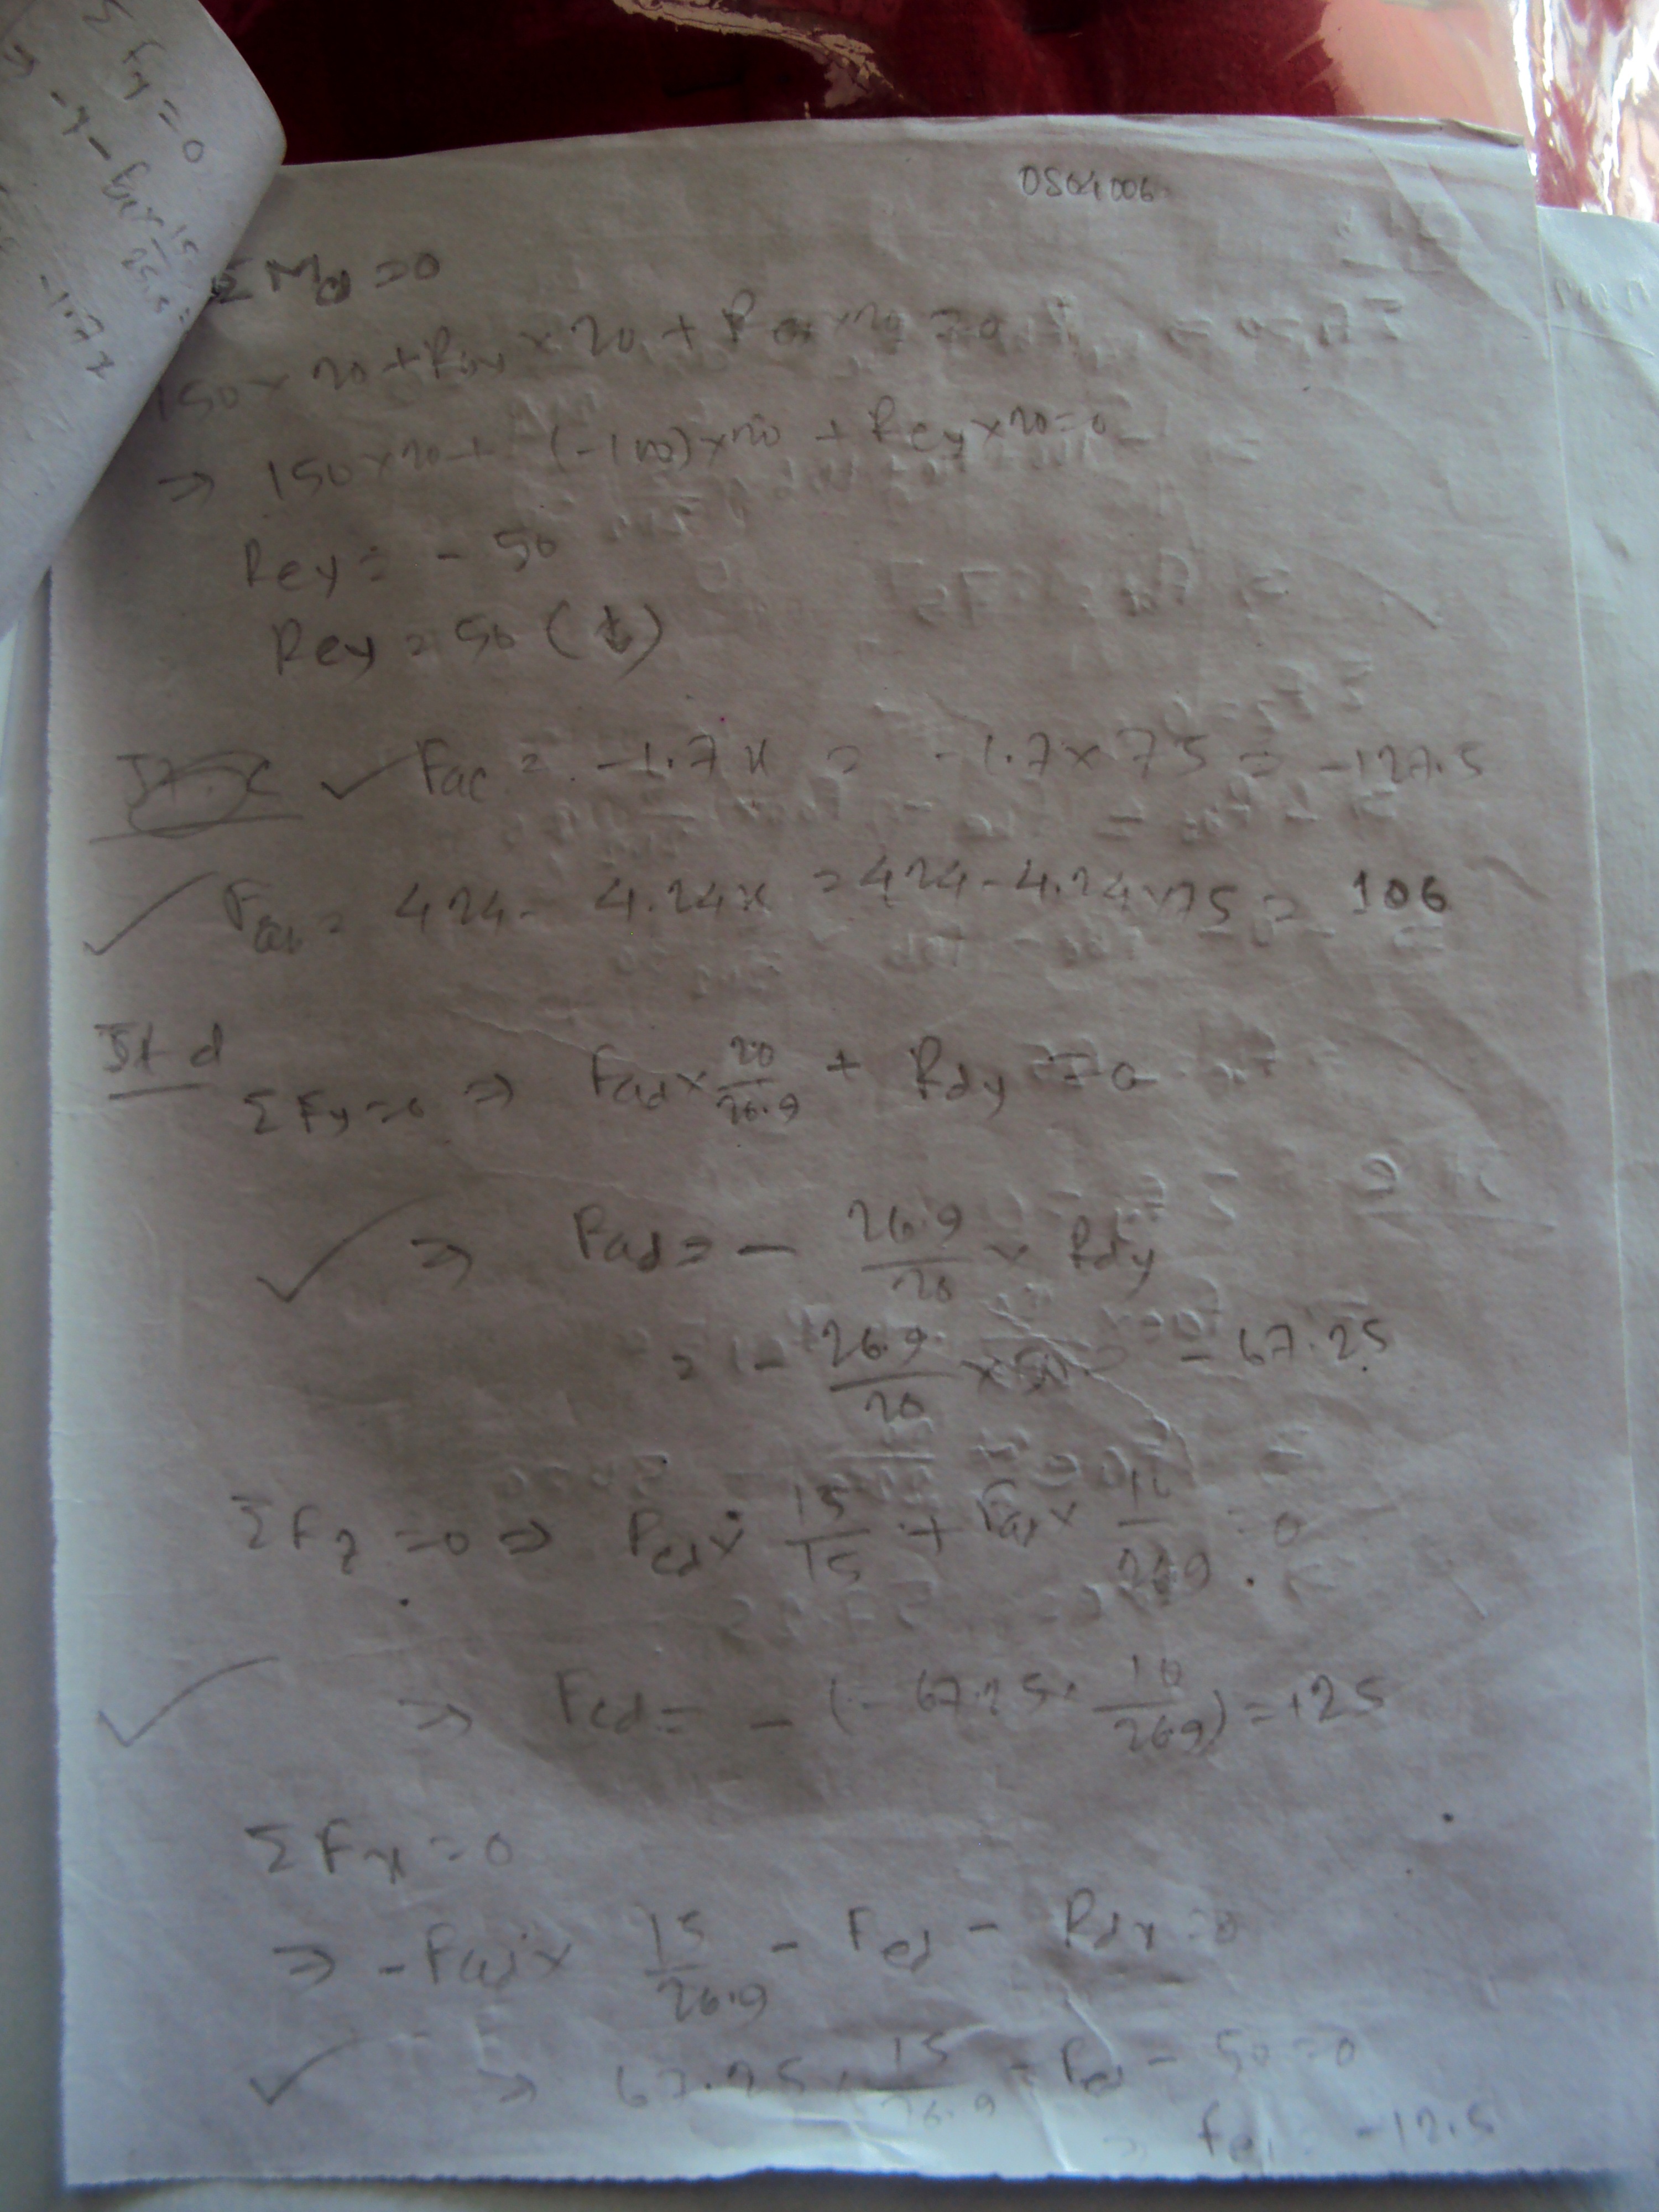 ΣFy = 0
0504006
ΣMd = 0
150×20 + Ray×20 + Rey×20 = 0
⇒ 150×20 + (-100)×20 + Rey×20 = 0
Rey = - 50
Rey = 50 (↓)
Fac = -1.7x = -1.7×75 = -127.5
Fab = 424 - 4.24x = 424 - 4.24×75 = 106
Jt d
ΣFy = 0 ⇒ Fad × 20/26.9 + Rdy = 0
⇒ Fad = - 26.9/20 × Rdy
= - 26.9/20 × 50 = - 67.25
ΣFz = 0 ⇒ Fcd × 15/15 + Fad × 10/26.9 = 0
⇒ Fcd = - (- 67.25 × 10/26.9) = +25
ΣFx = 0
⇒ -Fad × 15/26.9 - Fed - Rdx = 0
⇒ 67.25 × 15/26.9 - Fed - 50 = 0
⇒ Fed = -12.5